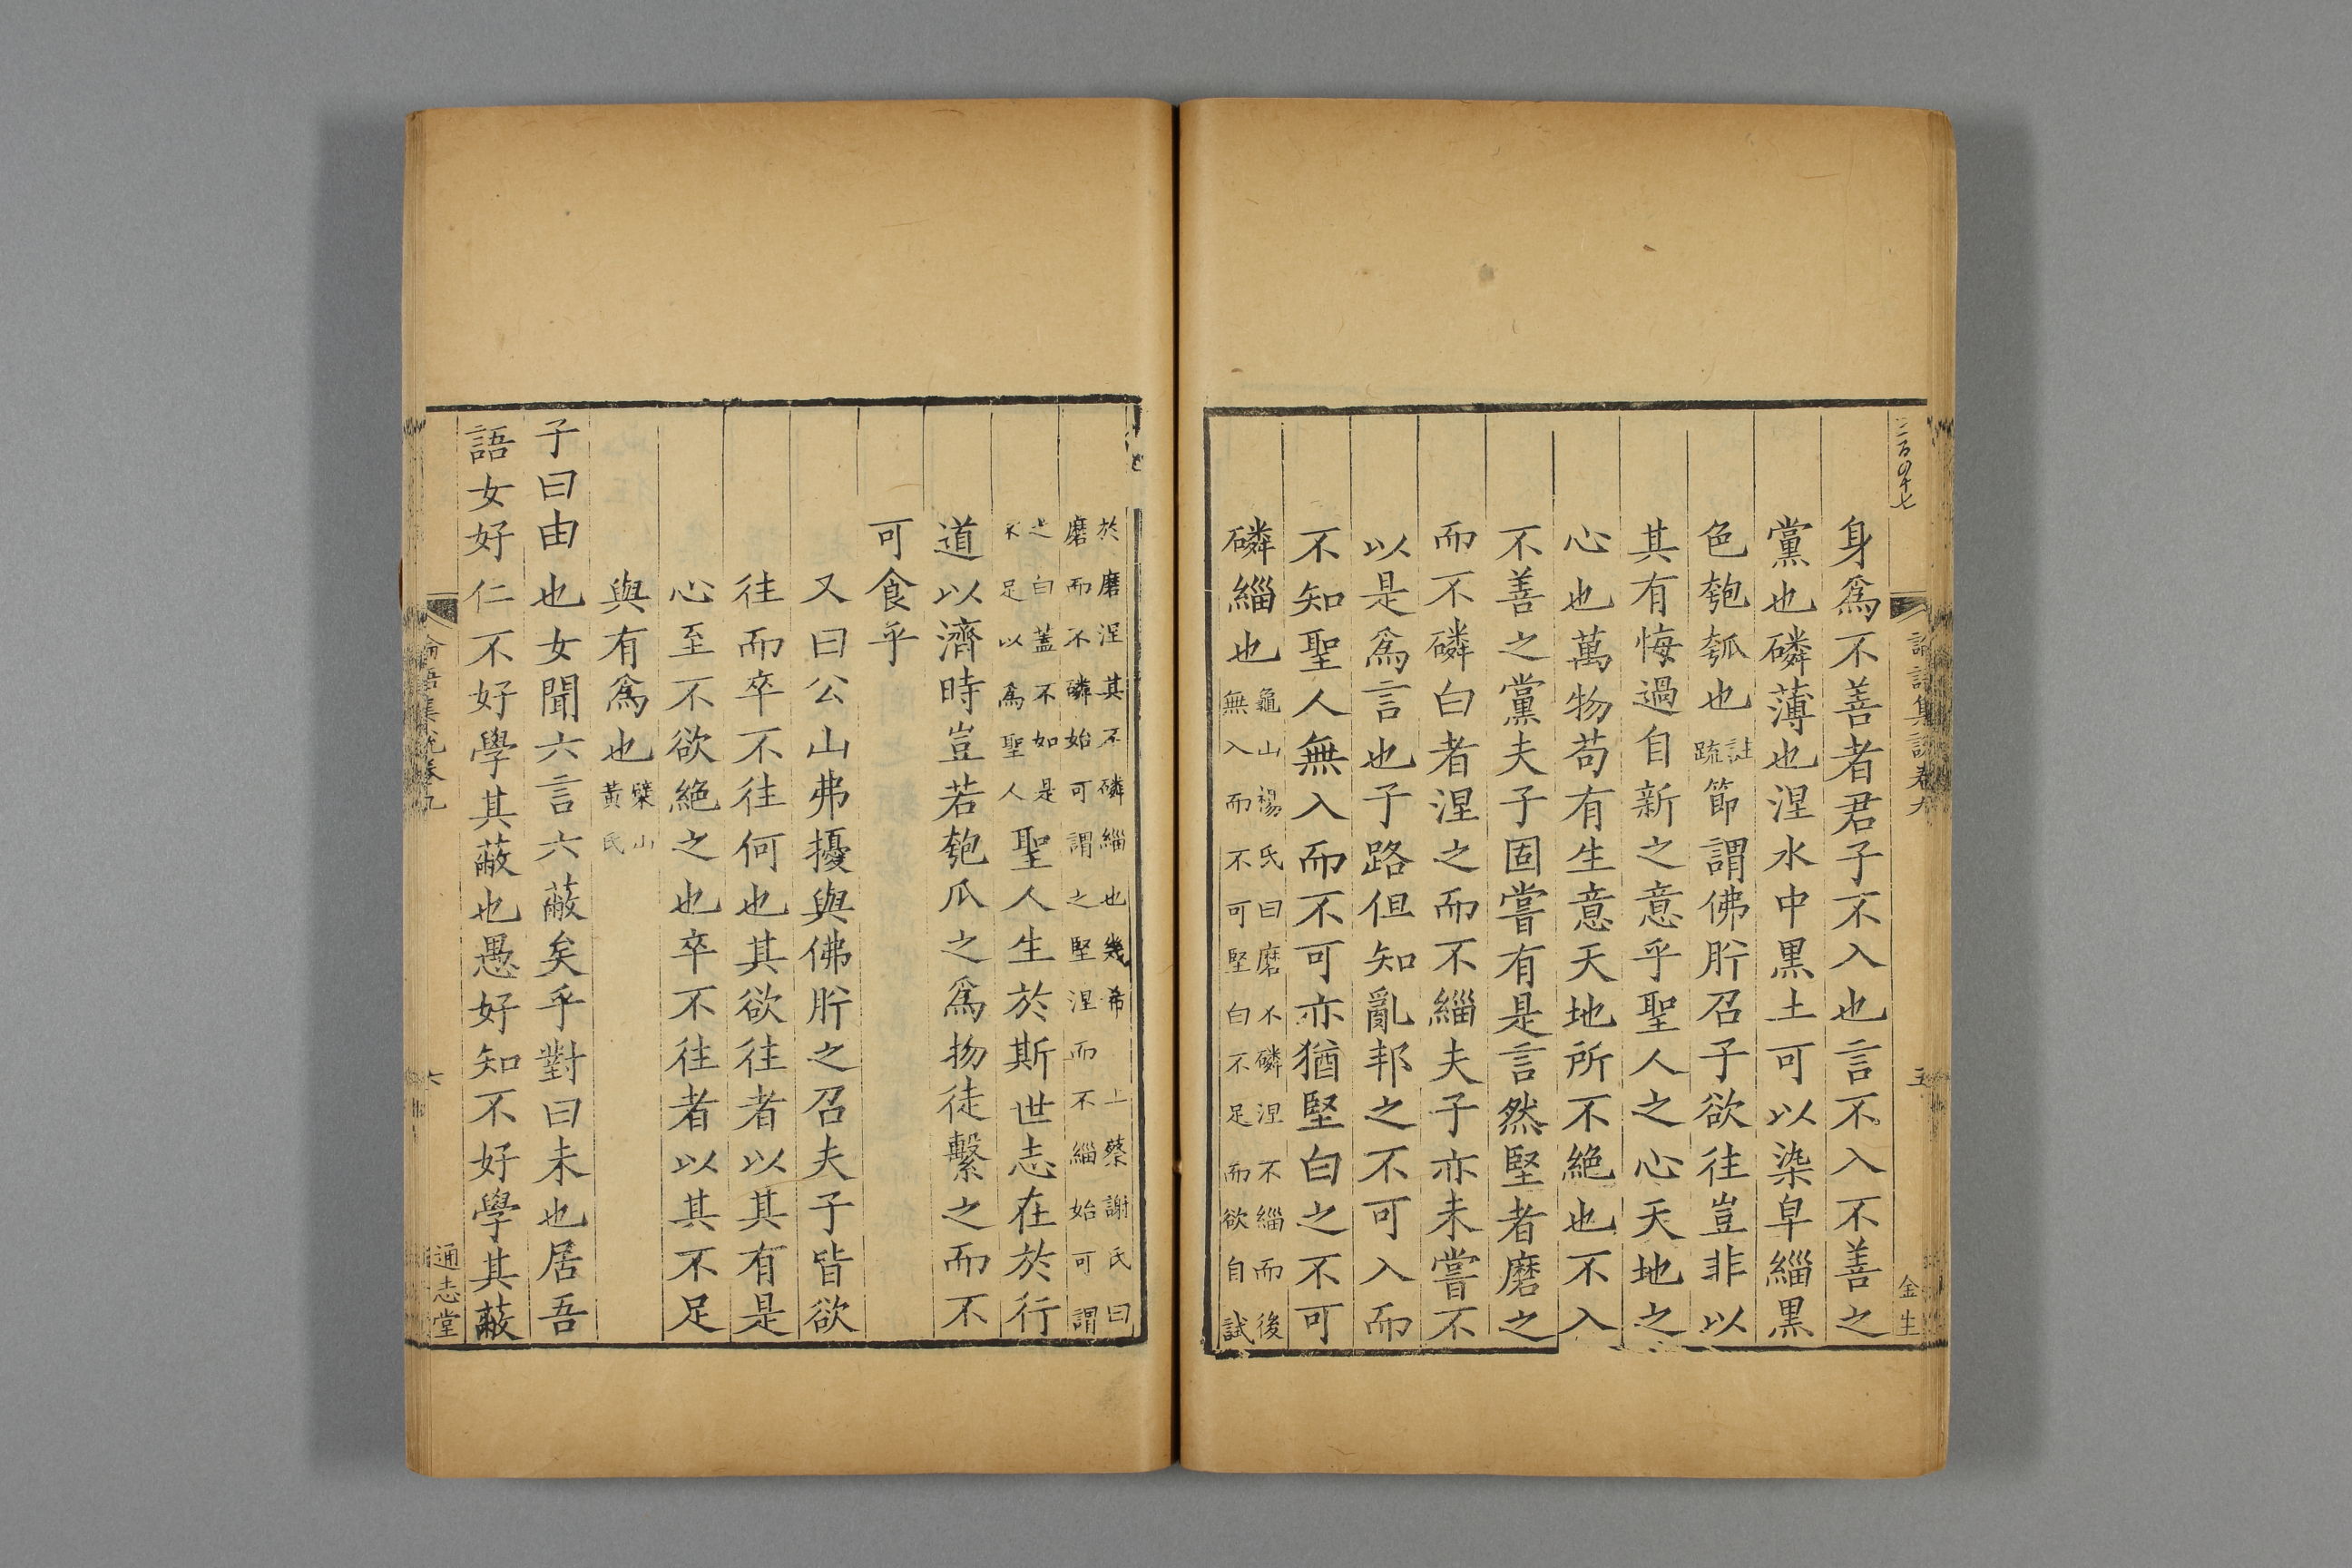 身爲不善者君子不入也言不入不善之
黨也磷薄也涅水中黒土可以染皁緇黒
色匏瓠也註疏節謂佛肸召子欲往豈非以
其有悔過自新之意乎聖人之心天地之
心也萬物苟有生意天地所不絶也不入
不善之黨夫子固嘗有是言然堅者磨之
而不磷白者涅之而不緇夫子亦未嘗不
以是爲言也子路但知亂邦之不可入而
不知聖人無入而不可亦猶堅白之不可
磷緇也龜山楊氏曰磨不磷涅不緇而後
無入而不可堅白不足而欲自試
五
金生
於磨涅其不磷緇也幾希上蔡謝氏曰
磨而不磷始可謂之堅涅而不緇始可謂
之白蓋不如是
不足以爲聖人
聖人生於斯世志在於行
道以濟時豈若匏瓜之爲物徒繫之而不
可食乎
又曰公山弗擾與佛肸之召夫子皆欲
往而卒不往何也其欲往者以其有是
心至不欲絶之也卒不往者以其不足
與有爲也檗山黃氏
子曰由也女聞六言六蔽矣乎對曰未也居吾
語女好仁不好學其蔽也愚好知不好學其蔽
六
通志堂